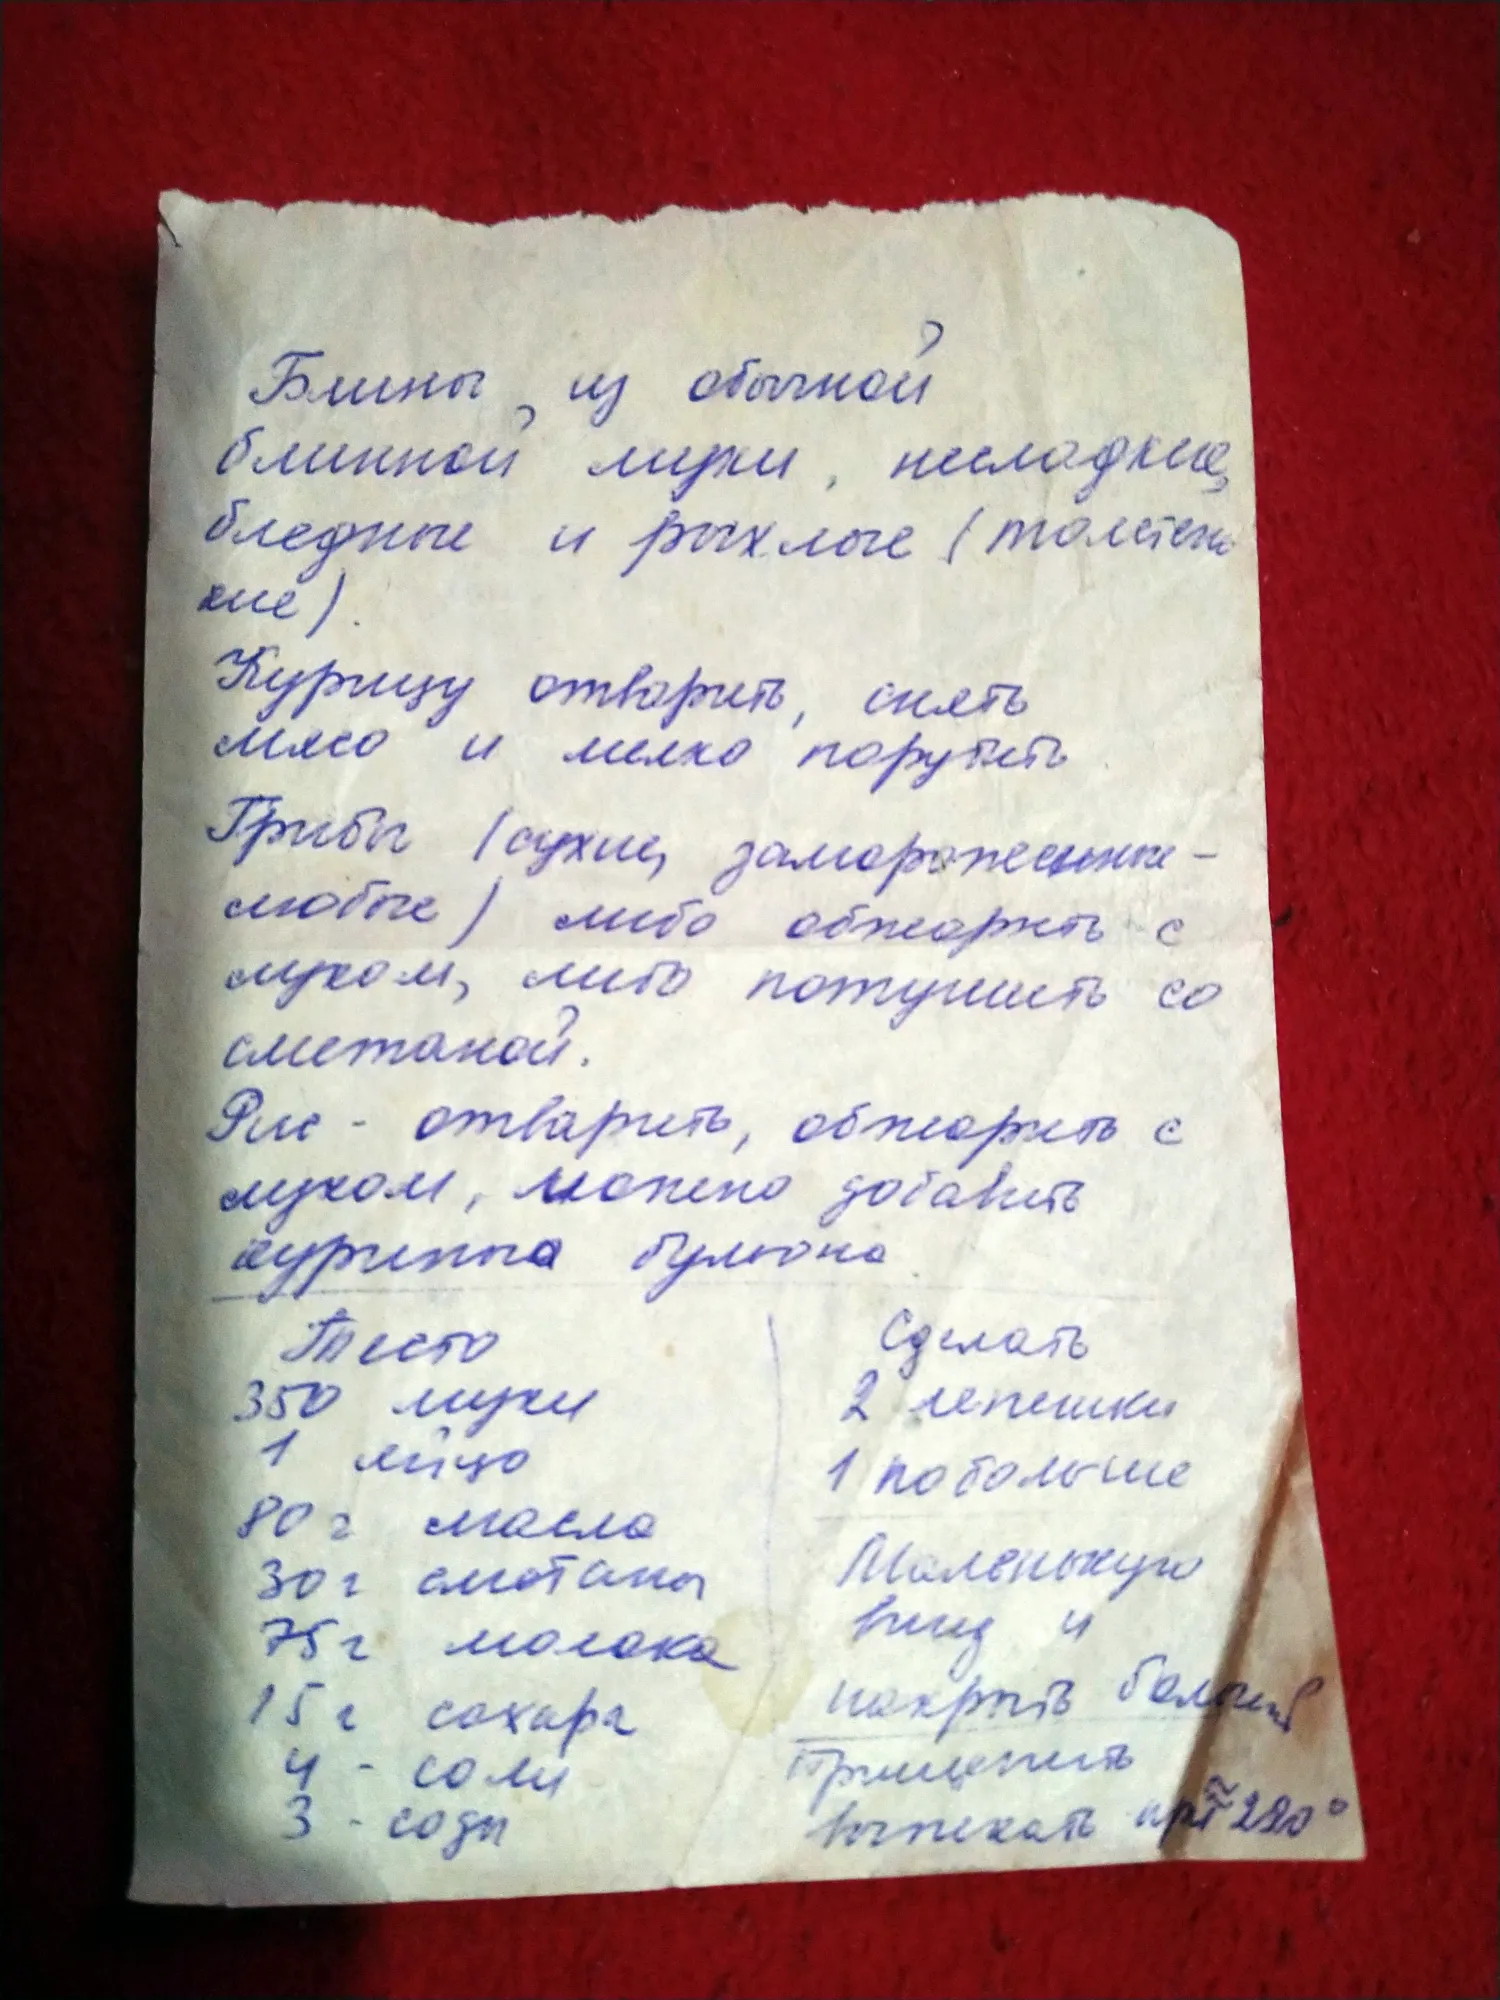 Блины из обычной
блинной муки, несладкие,
бледные и рыхлые (толстень
кие).
Курицу отварить, снять
мясо и мелко порубить
Грибы (сухие, замороженные -
любые) либо обжарить с
луком, либо потушить со
сметаной.
Рис - отварить, обжарить с
луком, можно добавить
куриного бульона
Тесто
350 муки
1 яйцо
80 г масла
30 г сметаны
75 г молока
15 г сахара
4 - соли
3 - соды
Сделать
2 лепешки
1 побольше
Маленькую
вниз и
накрыть большей
Прищепить
выпекать при ≈ 220°